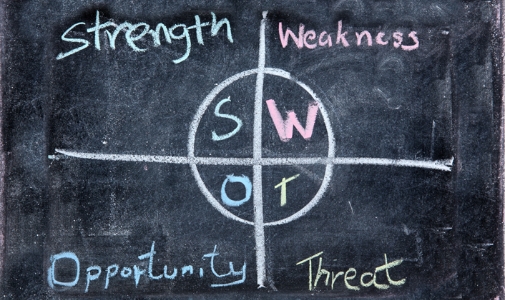 Strength Weakness
S W
O T
Opportunity Threat